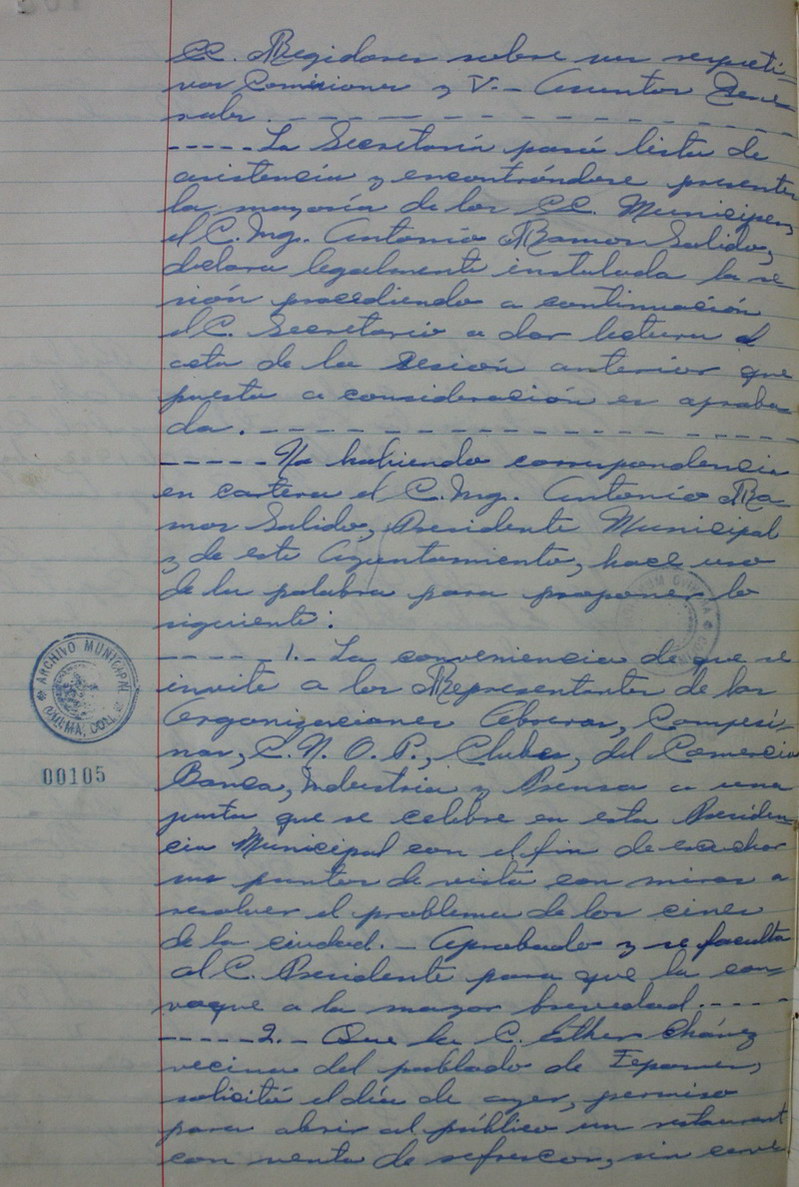 CC. Regidores sobre sus respecti-
vas Comisiones y V.- Asuntos Gene-
rales.
----- La Secretaría pasó lista de
asistencia y encontrándose presentes
la mayoría de los CC. Munícipes,
el C. Ing. Antonio Ramos Salido,
declara legalmente instalada la se-
sión procediendo a continuación
el C. Secretario a dar lectura al
acta de la sesión anterior que
puesta a consideración es aproba-
da.
----- No habiendo correspondencia
en cartera el C. Ing. Antonio Ra-
mos Salido, Presidente Municipal
y de este Ayuntamiento, hace uso
de la palabra para proponer lo
siguiente:
---- 1.- La conveniencia de que se
invite a los Representantes de las
Organizaciones Obreras, Campesi-
nas, C.N.O.P., Clubes, del Comercio
Banca, Industria y Prensa a una
junta que se celebre en esta Presiden-
cia Municipal con el fin de escuchar
sus puntos de vista con miras a
resolver el problema de los cines
de la ciudad.- Aprobado y se faculta
al C. Presidente para que la con-
voque a la mayor brevedad.----
-----2.- Que la C. Esther Chávez
vecina del poblado de
solicitó el día de ayer, permiso
para abrir al público un restaurant
con venta de refrescos, sin cerve
ARCHIVO MUNICIPAL
00105